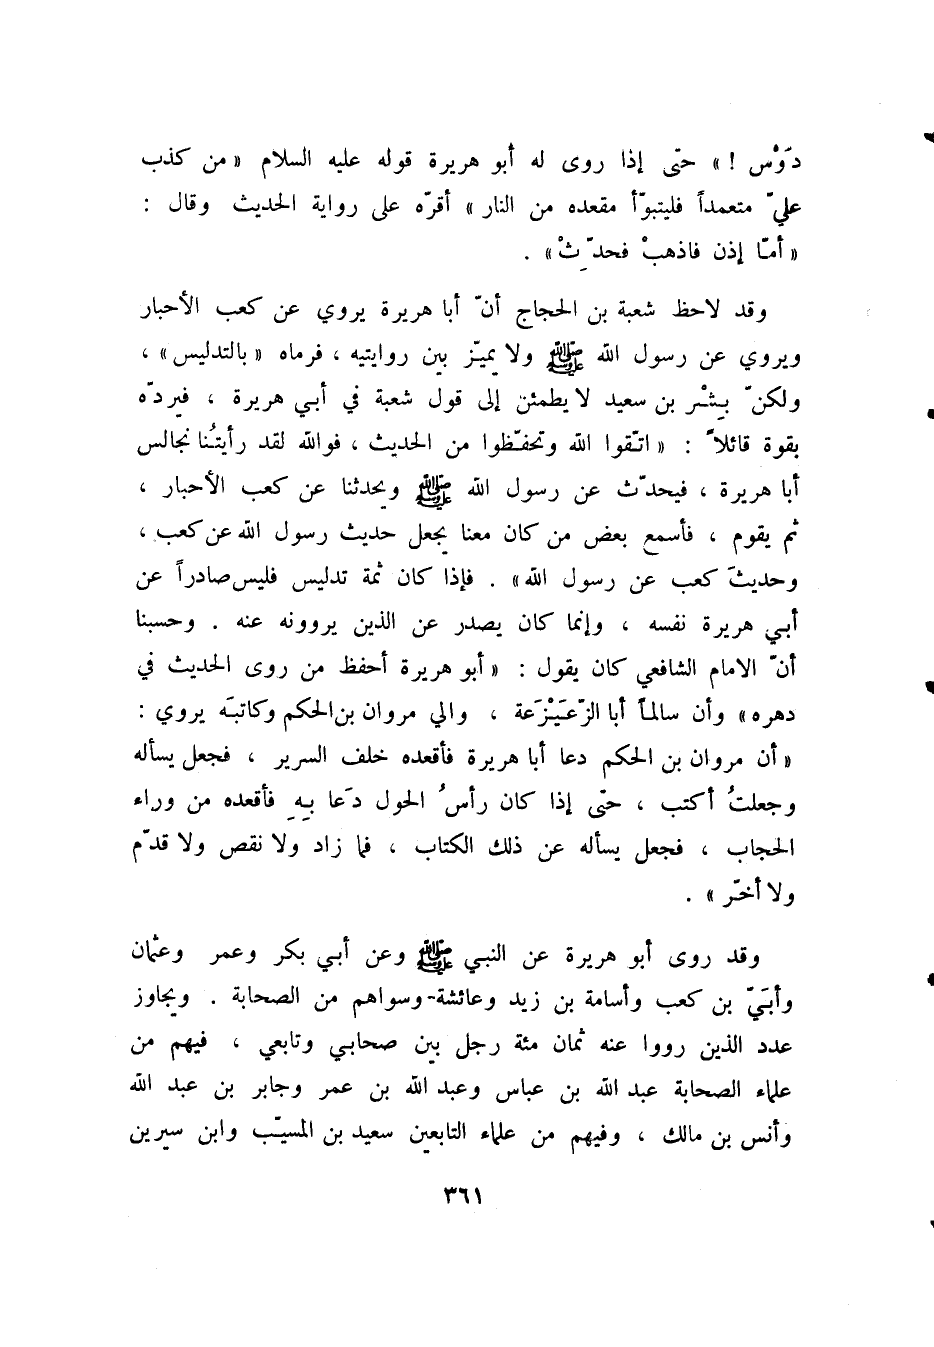 دَوْس ! » حتّى إذا روى له أبو هريرة قوله عليه السلام « من كذب
عليّ متعمداً فليتبوّأ مقعده من النار » أقرّه على رواية الحديث وقال :
« أمّا إذن فاذهبْ فحدِّثْ » .
وقد لاحظ شعبة بن الحجاج أنّ أبا هريرة يروي عن كعب الأحبار
ويروي عن رسول الله ﷺ ولا يميّز بين روايتيه ، فرماه « بالتدليس » ،
ولكنّ بِشْر بن سعيد لا يطمئن إلى قول شعبة في أبي هريرة ، فيردّه
بقوة قائلاً : « اتّقوا الله وتحفّظوا من الحديث ، فوالله لقد رأيتُنا نجالس
أبا هريرة ، فيحدّث عن رسول الله ﷺ ويحدثنا عن كعب الأحبار ،
ثم يقوم ، فأسمع بعض من كان معنا يجعل حديث رسول الله عن كعب ،
وحديثَ كعب عن رسول الله » . فإذا كان ثمة تدليس فليس صادراً عن
أبي هريرة نفسه ، وإنما كان يصدر عن الذين يروونه عنه . وحسبنا
أنّ الامام الشافعي كان يقول : « أبو هريرة أحفظ من روى الحديث في
دهره » وأن سالماً أبا الزّعَيْزَعة ، والي مروان بن الحكم وكاتبَه يروي :
« أن مروان بن الحكم دعا أبا هريرة فأقعده خلف السرير ، فجعل يسأله
وجعلتُ أكتب ، حتّى إذا كان رأسُ الحول دَعا بِهِ فأقعده من وراء
الحجاب ، فجعل يسأله عن ذلك الكتاب ، فما زاد ولا نقص ولا قدّم
ولا أخّر » .
وقد روى أبو هريرة عن النبي ﷺ وعن أبي بكر وعمر وعثمان
وأبَيّ بن كعب وأسامة بن زيد وعائشة-وسواهم من الصحابة . ويجاوز
عدد الذين رووا عنه ثمان مئة رجل بين صحابي وتابعي ، فيهم من
علماء الصحابة عبد الله بن عباس وعبد الله بن عمر وجابر بن عبد الله
وأنس بن مالك ، وفيهم من علماء التابعين سعيد بن المسيّب وابن سيرين
٣٦١